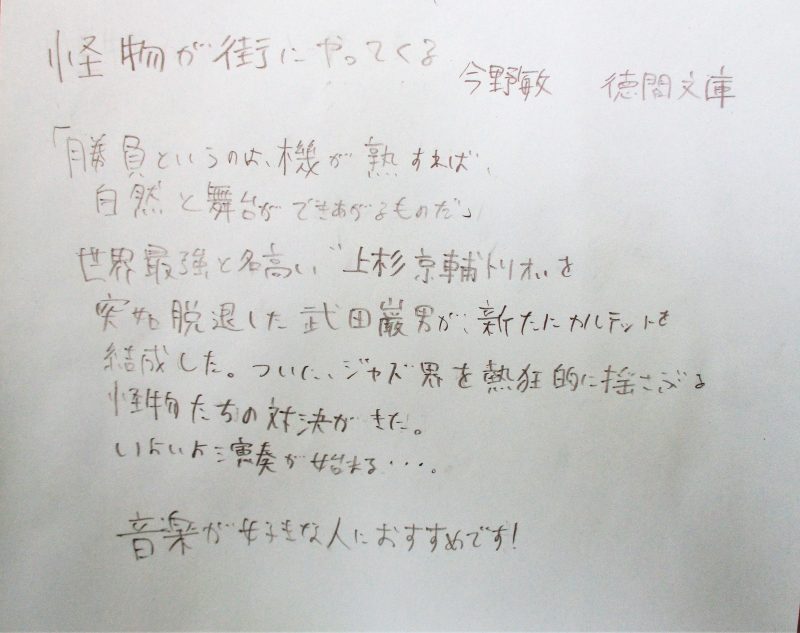 怪物が街にやってくる
今野敏 徳間文庫
「勝負というのは、機が熟すれば、
自然と舞台ができあがるものだ」
世界最強と名高い"上杉京輔トリオ"を
突如脱退した武田巌男が、新たにカルテットを
結成した。ついに、ジャズ界を熱狂的に揺さぶる
怪物たちの対決がきた。
いよいよ演奏が始まる・・・。
音楽が好きな人におすすめです!